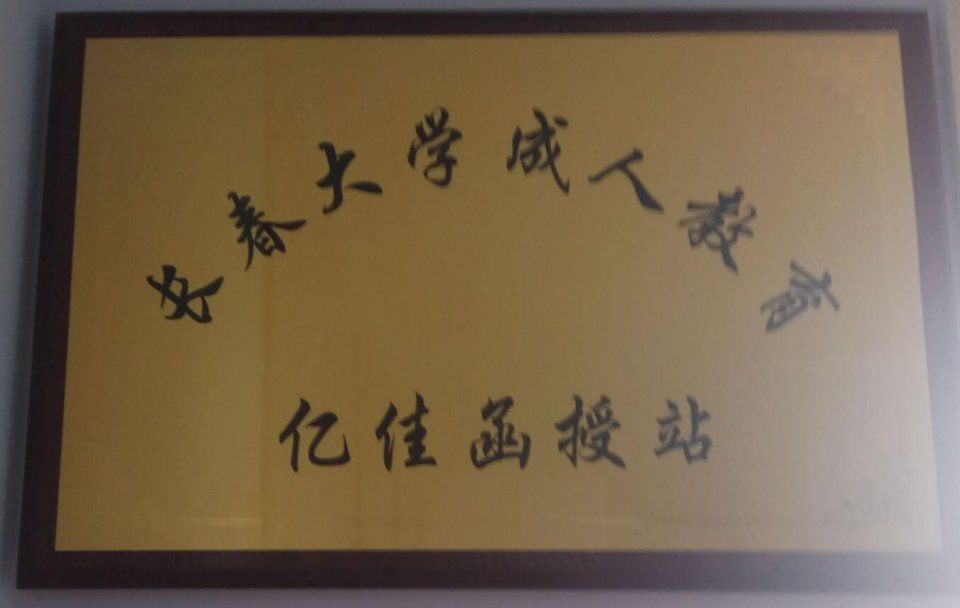 长春大学成人教育
亿佳函授站